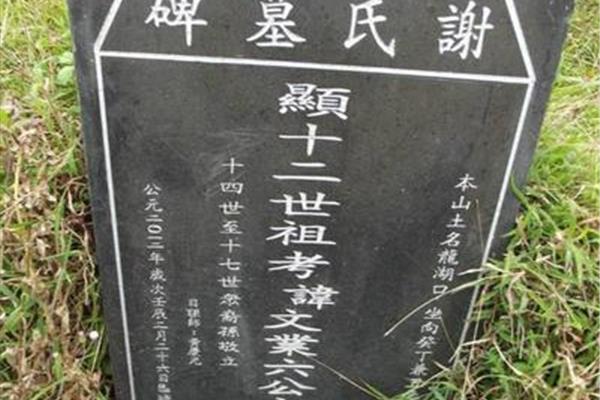 謝氏墓碑
本山土名龍湖口坐向癸丁兼
顯十二世祖考諱文業六公
十四世至十七世眾裔孫敬立
公元二〇一二年歲次壬辰二月二十六日
日課師：黄慶元